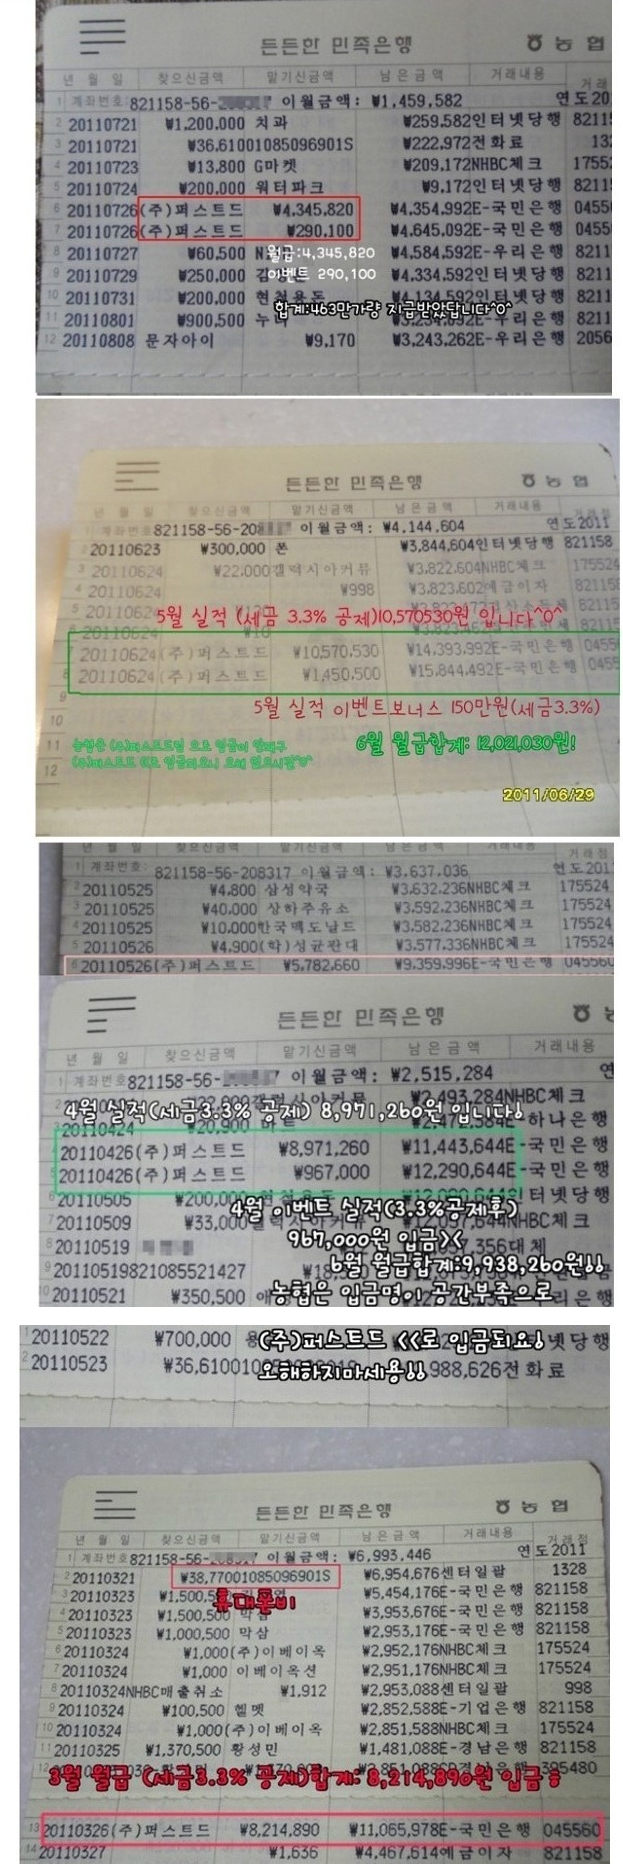 든든한 민족은행 농협
년 월 일 찾으신금액 맡기신금액 남은금액 거래내용 거래
1 계좌번호: 821158-56- 이월금액: ₩1,459,582 연도20
2 20110721 ₩1,200,000 치과 ₩259,582인터넷당행 8211
3 20110721 ₩36,61001085096901S ₩222,972전화료 132
4 20110723 ₩13,800 G마켓 ₩209,172NHBC체크 1755
5 20110724 ₩200,000 워터파크 ₩9,172인터넷당행 8211
6 20110726(주)퍼스트드 ₩4,345,820 ₩4,354,992E-국민은행 0455
7 20110726(주)퍼스트드 ₩290,100 ₩4,645,092E-국민은행 0455
8 20110727 ₩60,500 ₩4,584,592E-우리은행 8211
월급:4,345,820
9 20110729 ₩250,000 ₩4,334,592인터넷당행 8211
이벤트 290,100
10 20110731 ₩200,000 현철용돈 ₩4,134,592인터넷당행 8211
합계:463만가량 지급받았답니다^0^
11 20110801 ₩900,500 누나 E-우리은행 8211
12 20110808 문자아이 ₩9,170 ₩3,243,262E-우리은행 2056
든든한 민족은행 농협
년 월 일 찾으신금액 맡기신금액 남은금액 거래내용
1 계좌번호 821158-56-208 이월금액: ₩4,144,604 연도2011
2 20110623 ₩300,000 폰 ₩3,844,604인터넷당행 821158
3 20110624 ₩22,000갤럭시아커뮤 ₩3,822,604NHBC체크 175524
4 20110624 ₩998 ₩3,823,602예금이자 821158
5 20110624
5월 실적 (세금 3.3% 공제)10,570530원 입니다^0^
6 20110624
7 20110624(주)퍼스트드 ₩10,570,530 ₩14,393,992E-국민은행 0455
8 20110624(주)퍼스트드 ₩1,450,500 ₩15,844,492E-국민은행 0455
9
5월 실적 이벤트보너스 150만원(세금3.3%)
10
11
6월 월급합계: 12,021,030원!
12
2011/06/29
년 월 일 찾으신금액 맡기신금액 남은금액 거래내용 거래점
1 계좌번호: 821158-56-208317 이월금액: ₩3,637,036 연도201
2 20110525 ₩4,800 삼성약국 ₩3,632,236NHBC체크 175524
3 20110525 ₩40,000 상하주유소 ₩3,592,236NHBC체크 175524
4 20110525 ₩10,000한국맥도날드 ₩3,582,236NHBC체크 175524
5 20110526 ₩4,900(학)성균관대 ₩3,577,336NHBC체크 175524
6 20110526(주)퍼스트드 ₩5,782,660 ₩9,359,996E-국민은행 045560
든든한 민족은행
년 월 일 찾으신금액 맡기신금액 남은금액 거래내용
1 계좌번호 821158-56- 7 이월금액: ₩2,515,284 연
갤럭시아커뮤 ₩2,493,284NHBC체크
4월 실적(세금3.3% 공제) 8,971,260원 입니다!
20110424 ₩20,900 마트 E-하나은행
4 20110426(주)퍼스트드 ₩8,971,260 ₩11,443,644E-국민은행
5 20110426(주)퍼스트드 ₩967,000 ₩12,290,644E-국민은행
6 20110505 ₩200,000 현철용돈 인터넷당행
4월 이벤트 실적(3.3%공제후)
7 20110509 ₩33,000갤럭시아커뮤 NHBC체크
967,000원 입금><
8 20110519 대체
6월 월급합계:9,938,260원!!
9 20110519821085521427
농협은 입금명이 공간부족으로
10 20110521 ₩350,500
1 20110522 ₩700,000 인터넷당행
(주)퍼스트드 <<로 입금되요!
2 20110523 988,626전화료
오해하지마세용!!
든든한 민족은행 농협
년 월 일 찾으신금액 맡기신금액 남은금액 거래내용 거래점
1 계좌번호 821158-56- 이월금액: ₩6,993,446 연도2011
2 20110321 ₩38,77001085096901S ₩6,954,676센터일괄 1328
3 20110323 ₩1,500,500 ₩5,454,176E-국민은행 821158
휴대폰비
4 20110323 ₩1,500,500 막삼 ₩3,953,676E-국민은행 821158
5 20110323 ₩1,000,500 막삼 ₩2,953,176E-국민은행 821158
6 20110324 ₩1,000(주)이베이옥 ₩2,952,176NHBC체크 175524
7 20110324 ₩1,000 이베이옥션 ₩2,951,176NHBC체크 175524
8 20110324NHBC매출취소 ₩1,912 ₩2,953,088센터일괄 998
9 20110324 ₩100,500 헬멧 ₩2,852,588E-기업은행 821158
10 20110324 ₩1,000(주)이베이옥 ₩2,851,588NHBC체크 175524
11 20110325 ₩1,370,500 황성민 ₩1,481,088E-경남은행 821158
3월 월급 (세금3.3% 공제)합계: 8,214,890원 입금!
13 20110326(주)퍼스트드 ₩8,214,890 ₩11,065,978E-국민은행 045560
14 20110327 ₩1,636 ₩4,467,614예금이자 821158